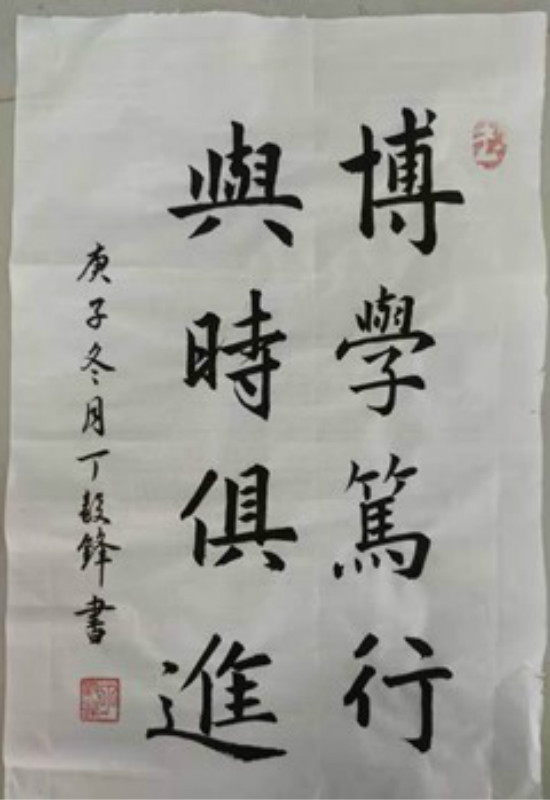 博學篤行
與時俱進
庚子冬月丁毅鋒書